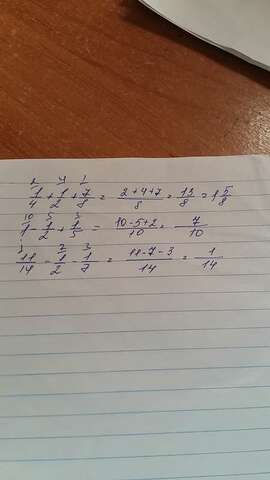 2 4 1
1/4 + 1/2 + 7/8 = 2+4+7/8 = 13/8 = 1 5/8
10 5
1 - 1/2 + 1/5 = 10-5+2/10 = 7/10
11/14 - 1/2 - 1/7 = 11-7-3/14 = 1/14